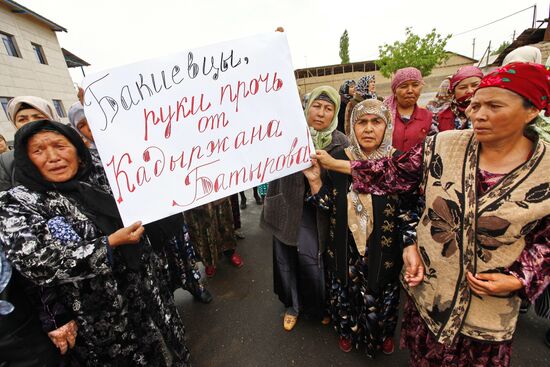 Бакиевцы,
руки прочь
от
Кадыржана
Батырова